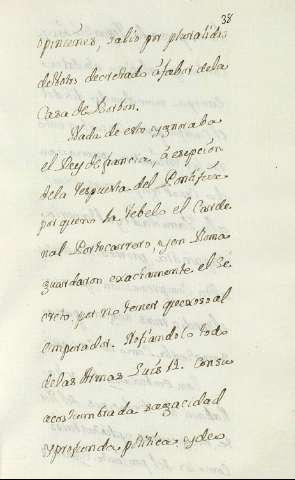 38
opiniones, salio por pluralidad
de Votos decretado á fabor de la
Casa de Borbon.
Nada de esto ygnoraba
el Rey de francia, á esepcion
de la respuesta del Pontifice
porque no la rebelo el Carde
nal Portocarrero, y en Roma
guardaron exactamente el Se
creto, por no tener quexoso al
emperador. Nofiandolo todo
de las Armas Luis 14. Con su
acostumbrada sagacidad
y profunda politica, y de